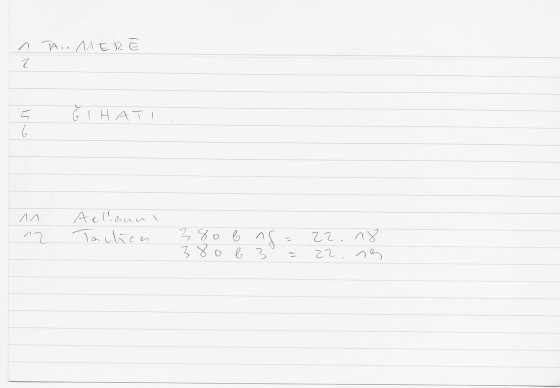 1 TA..MERĒ
2
5 ĞIHATI.
6
11 Aelianus
12 Tactica 380 b 18 = 22.18
380 b 3 = 22.19